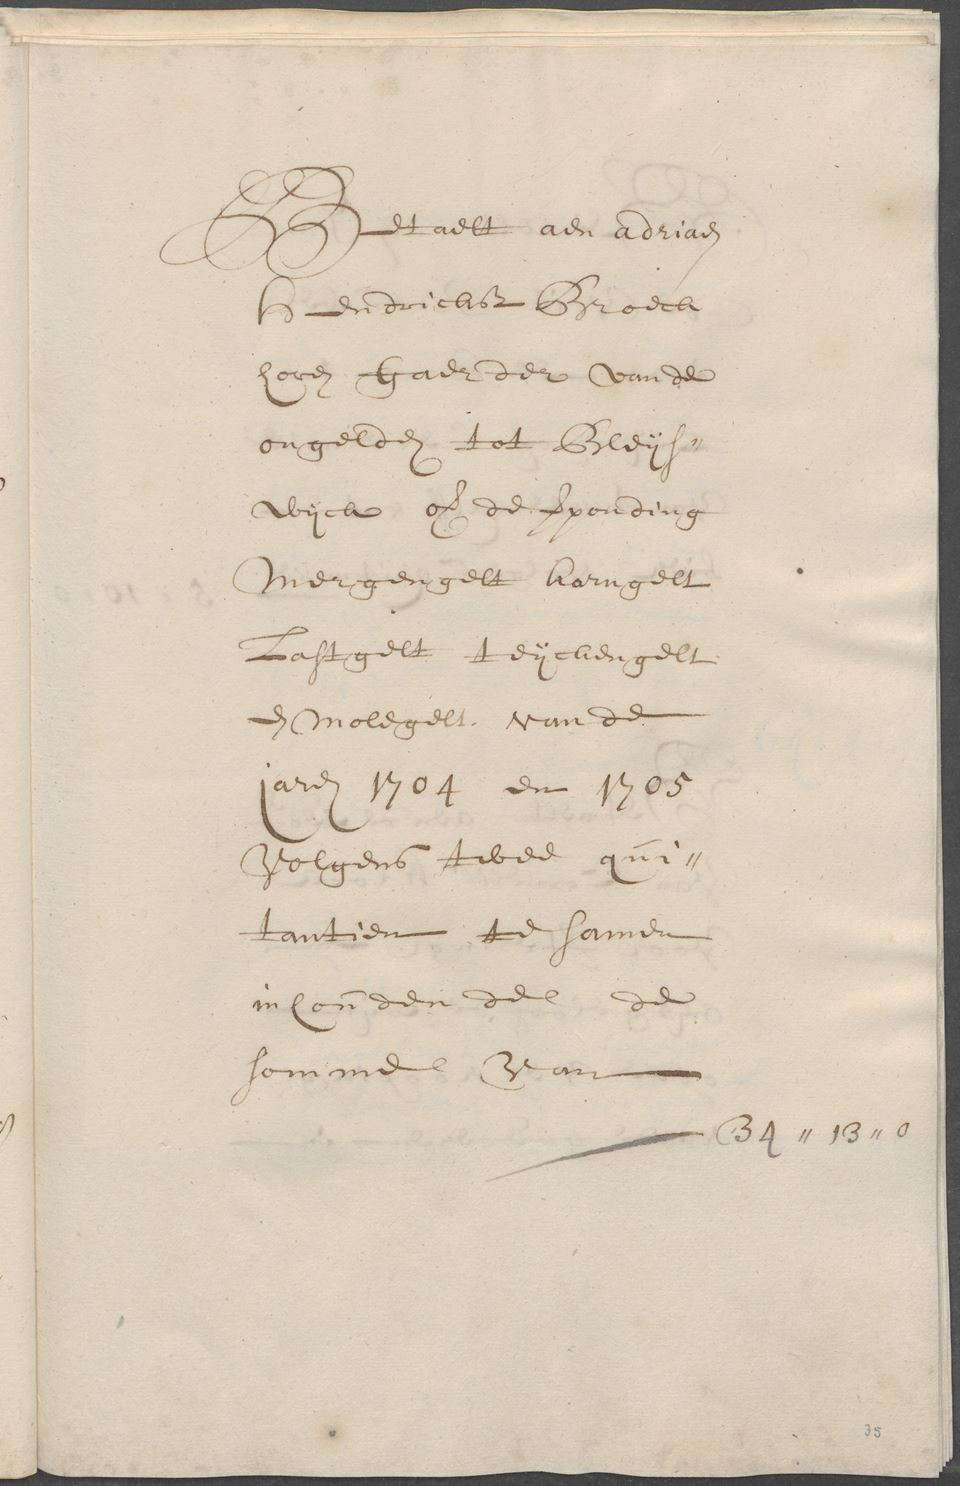 Betaelt aen adriaen
Hendricksz Broeck
horen gaerder vande
ongelden tot Bleijs"
wijck of de sponding
Mergengelt horngelt
Lastgelt teijckengelt
en Molegelt vande
jaren 1704 en 1705
Volgens twee qui"
tantien te samen
in houden de de
somme Van
34 " 13 " 0
35